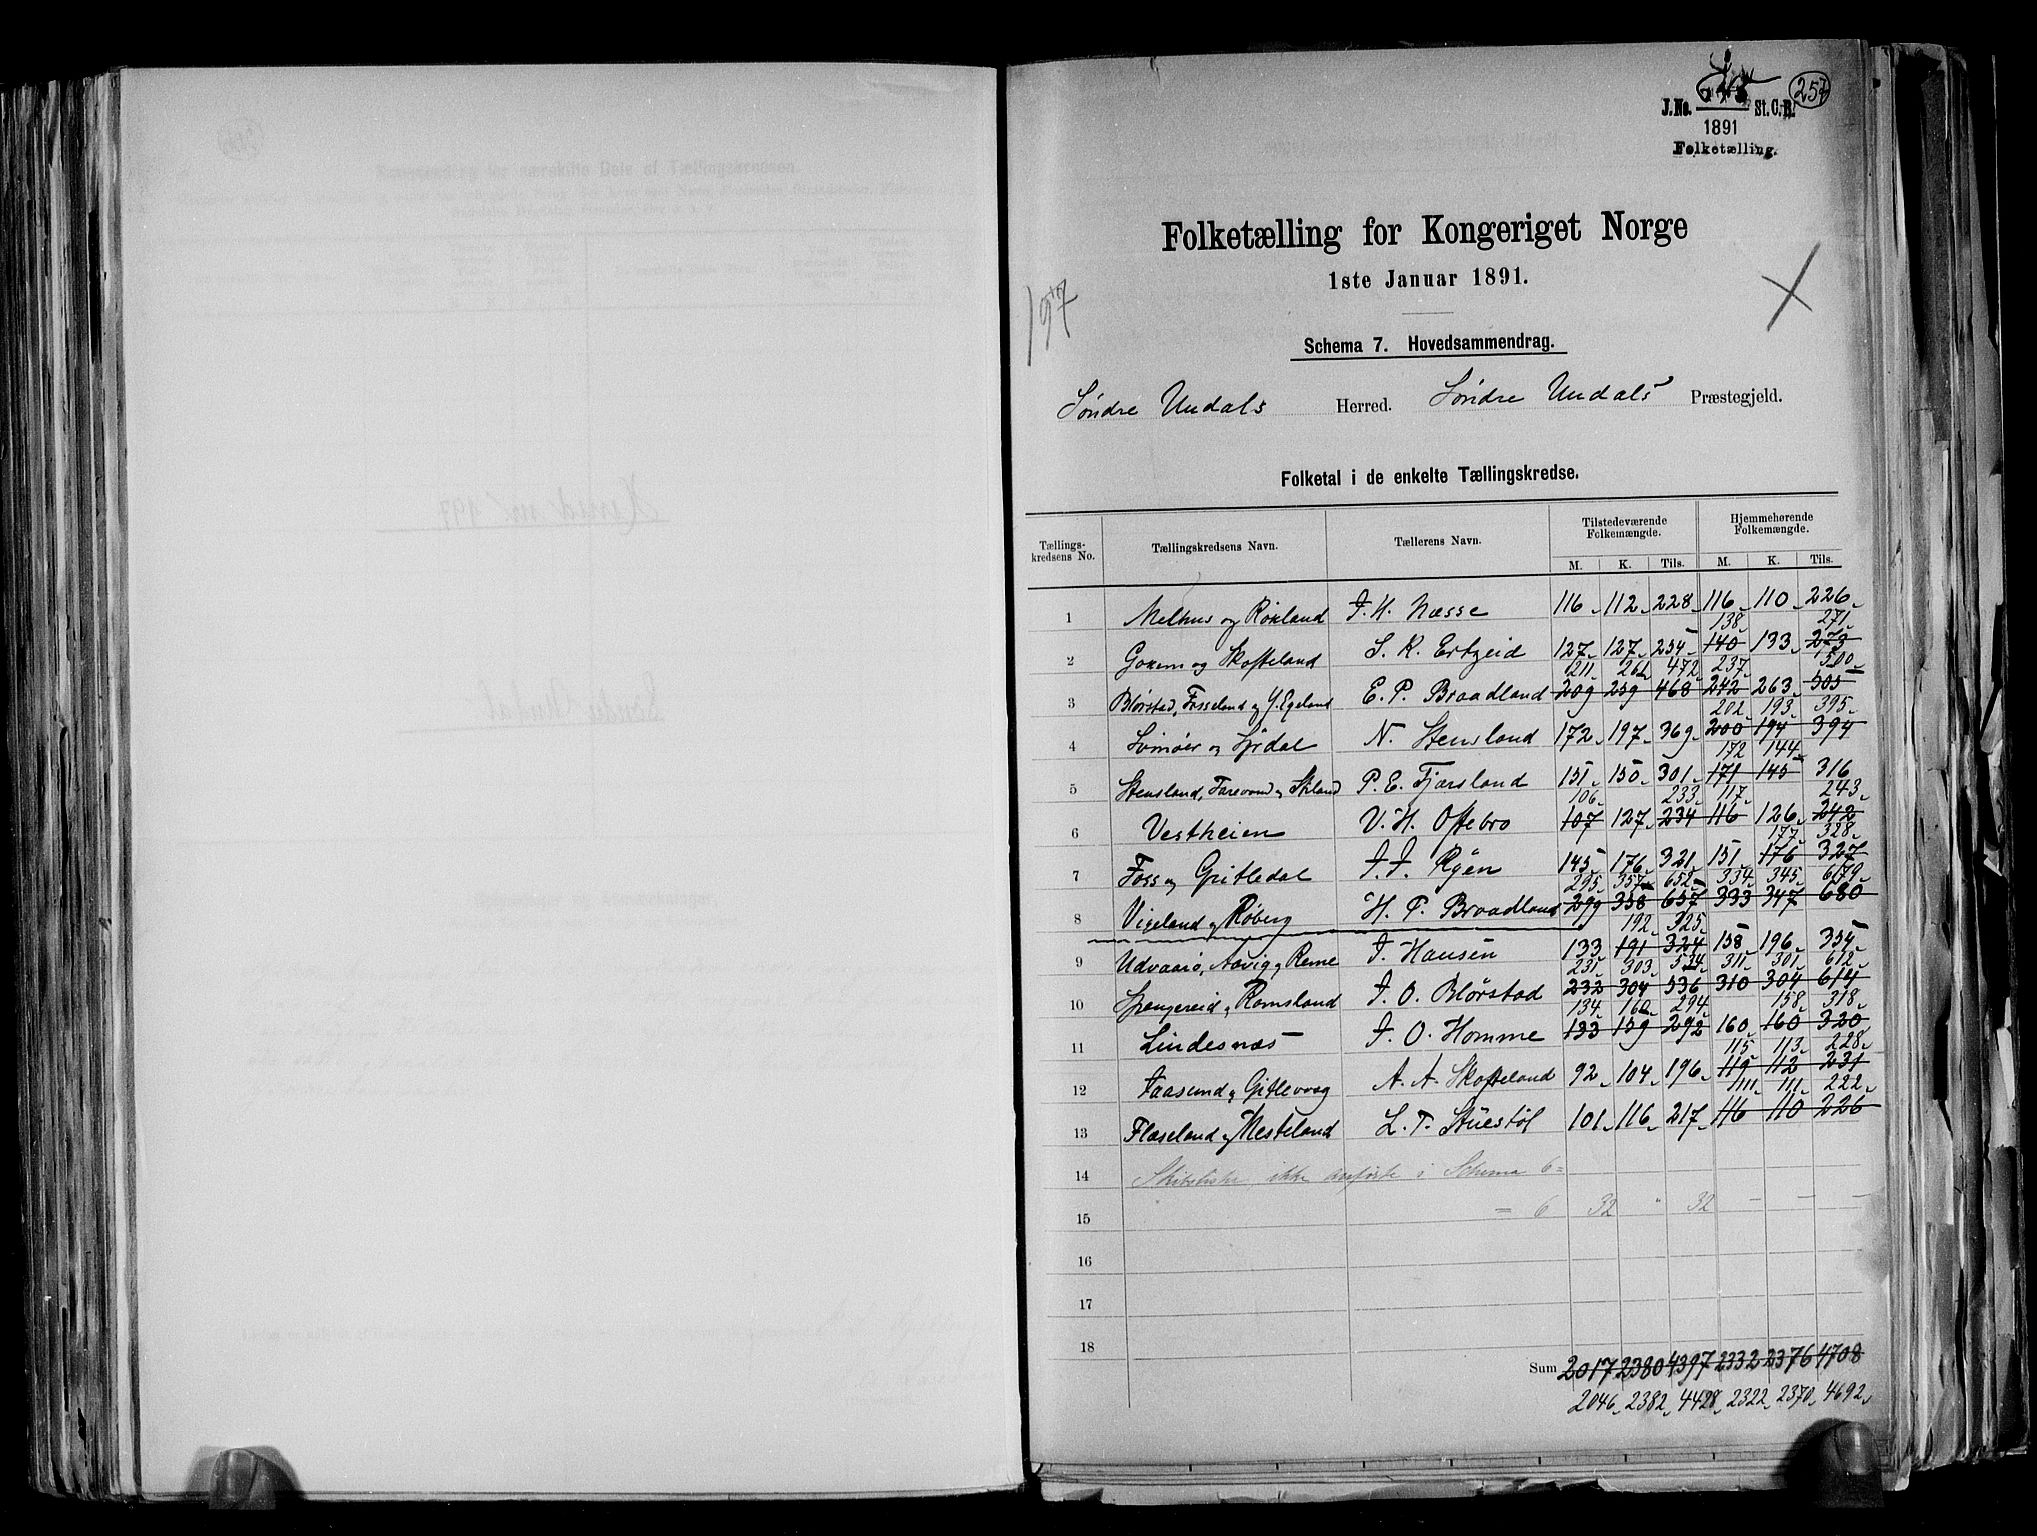 257
J.No. St.C.B.
1891
Folketælling.
Folketælling for Kongeriget Norge
1ste Januar 1891.
197
Schema 7. Hovedsammendrag.
Søndre Undals Herred. Søndre Undals Præstegjeld.
Folketal i de enkelte Tællingskredse.
Tællings-kredsens No. Tællingskredsens Navn. Tællerens Navn. Tilstedeværende Folkemængde. Hjemmehørende Folkemængde.
M. K. Tils. M. K. Tils.
1 Melhus og Røxland J. H. Næsse 116 112 228 116 110 226
138 271
2 Goxem og Skofteland S. K. Ertzeid 127 127 254 140 133 273
211 261 472 237 500
3 Blørstad, Fosseland og Y. Egeland E. P. Braadland 209 259 468 242 263 505
202 193 395
4 Svinøer og Syrdal N. Stensland 172 197 369 200 194 394
172 144
5 Stensland, Farevond og Skiland P. E. Fjærsland 151 150 301 171 145 316
106 233 117 243
6 Vestheien V. H. Oftebro 107 127 234 116 126 242
177 328
7 Foss og Gritledal J. J. Ryen 145 176 321 151 176 327
295 357 652 334 345 679
8 Vigeland og Røberg H. P. Braadland 299 358 657 333 347 680
192 325
9 Udvaarø, Aavig og Reme J. Hansen 133 191 324 158 196 354
231 303 534 311 301 612
10 Spangereid og Ramsland J. O. Blørstad 232 304 536 310 304 614
134 160 294 158 318
11 Lindesnæs J. O. Homme 133 159 292 160 160 320
115 113 228
12 Faasund og Gitlevaag A. A. Skofteland 92 104 196 119 112 231
111 111 222
13 Flaseland og Mesteland L. T. Stuestøl 101 116 217 116 110 226
14 Skibslister, ikke anførte i Schema 6 =
15 = 6 32 " 32 — — —
16
17
18
Sum 2017 2380 4397 2332 2376 4708
2046 2382 4428 2322 2370 4692